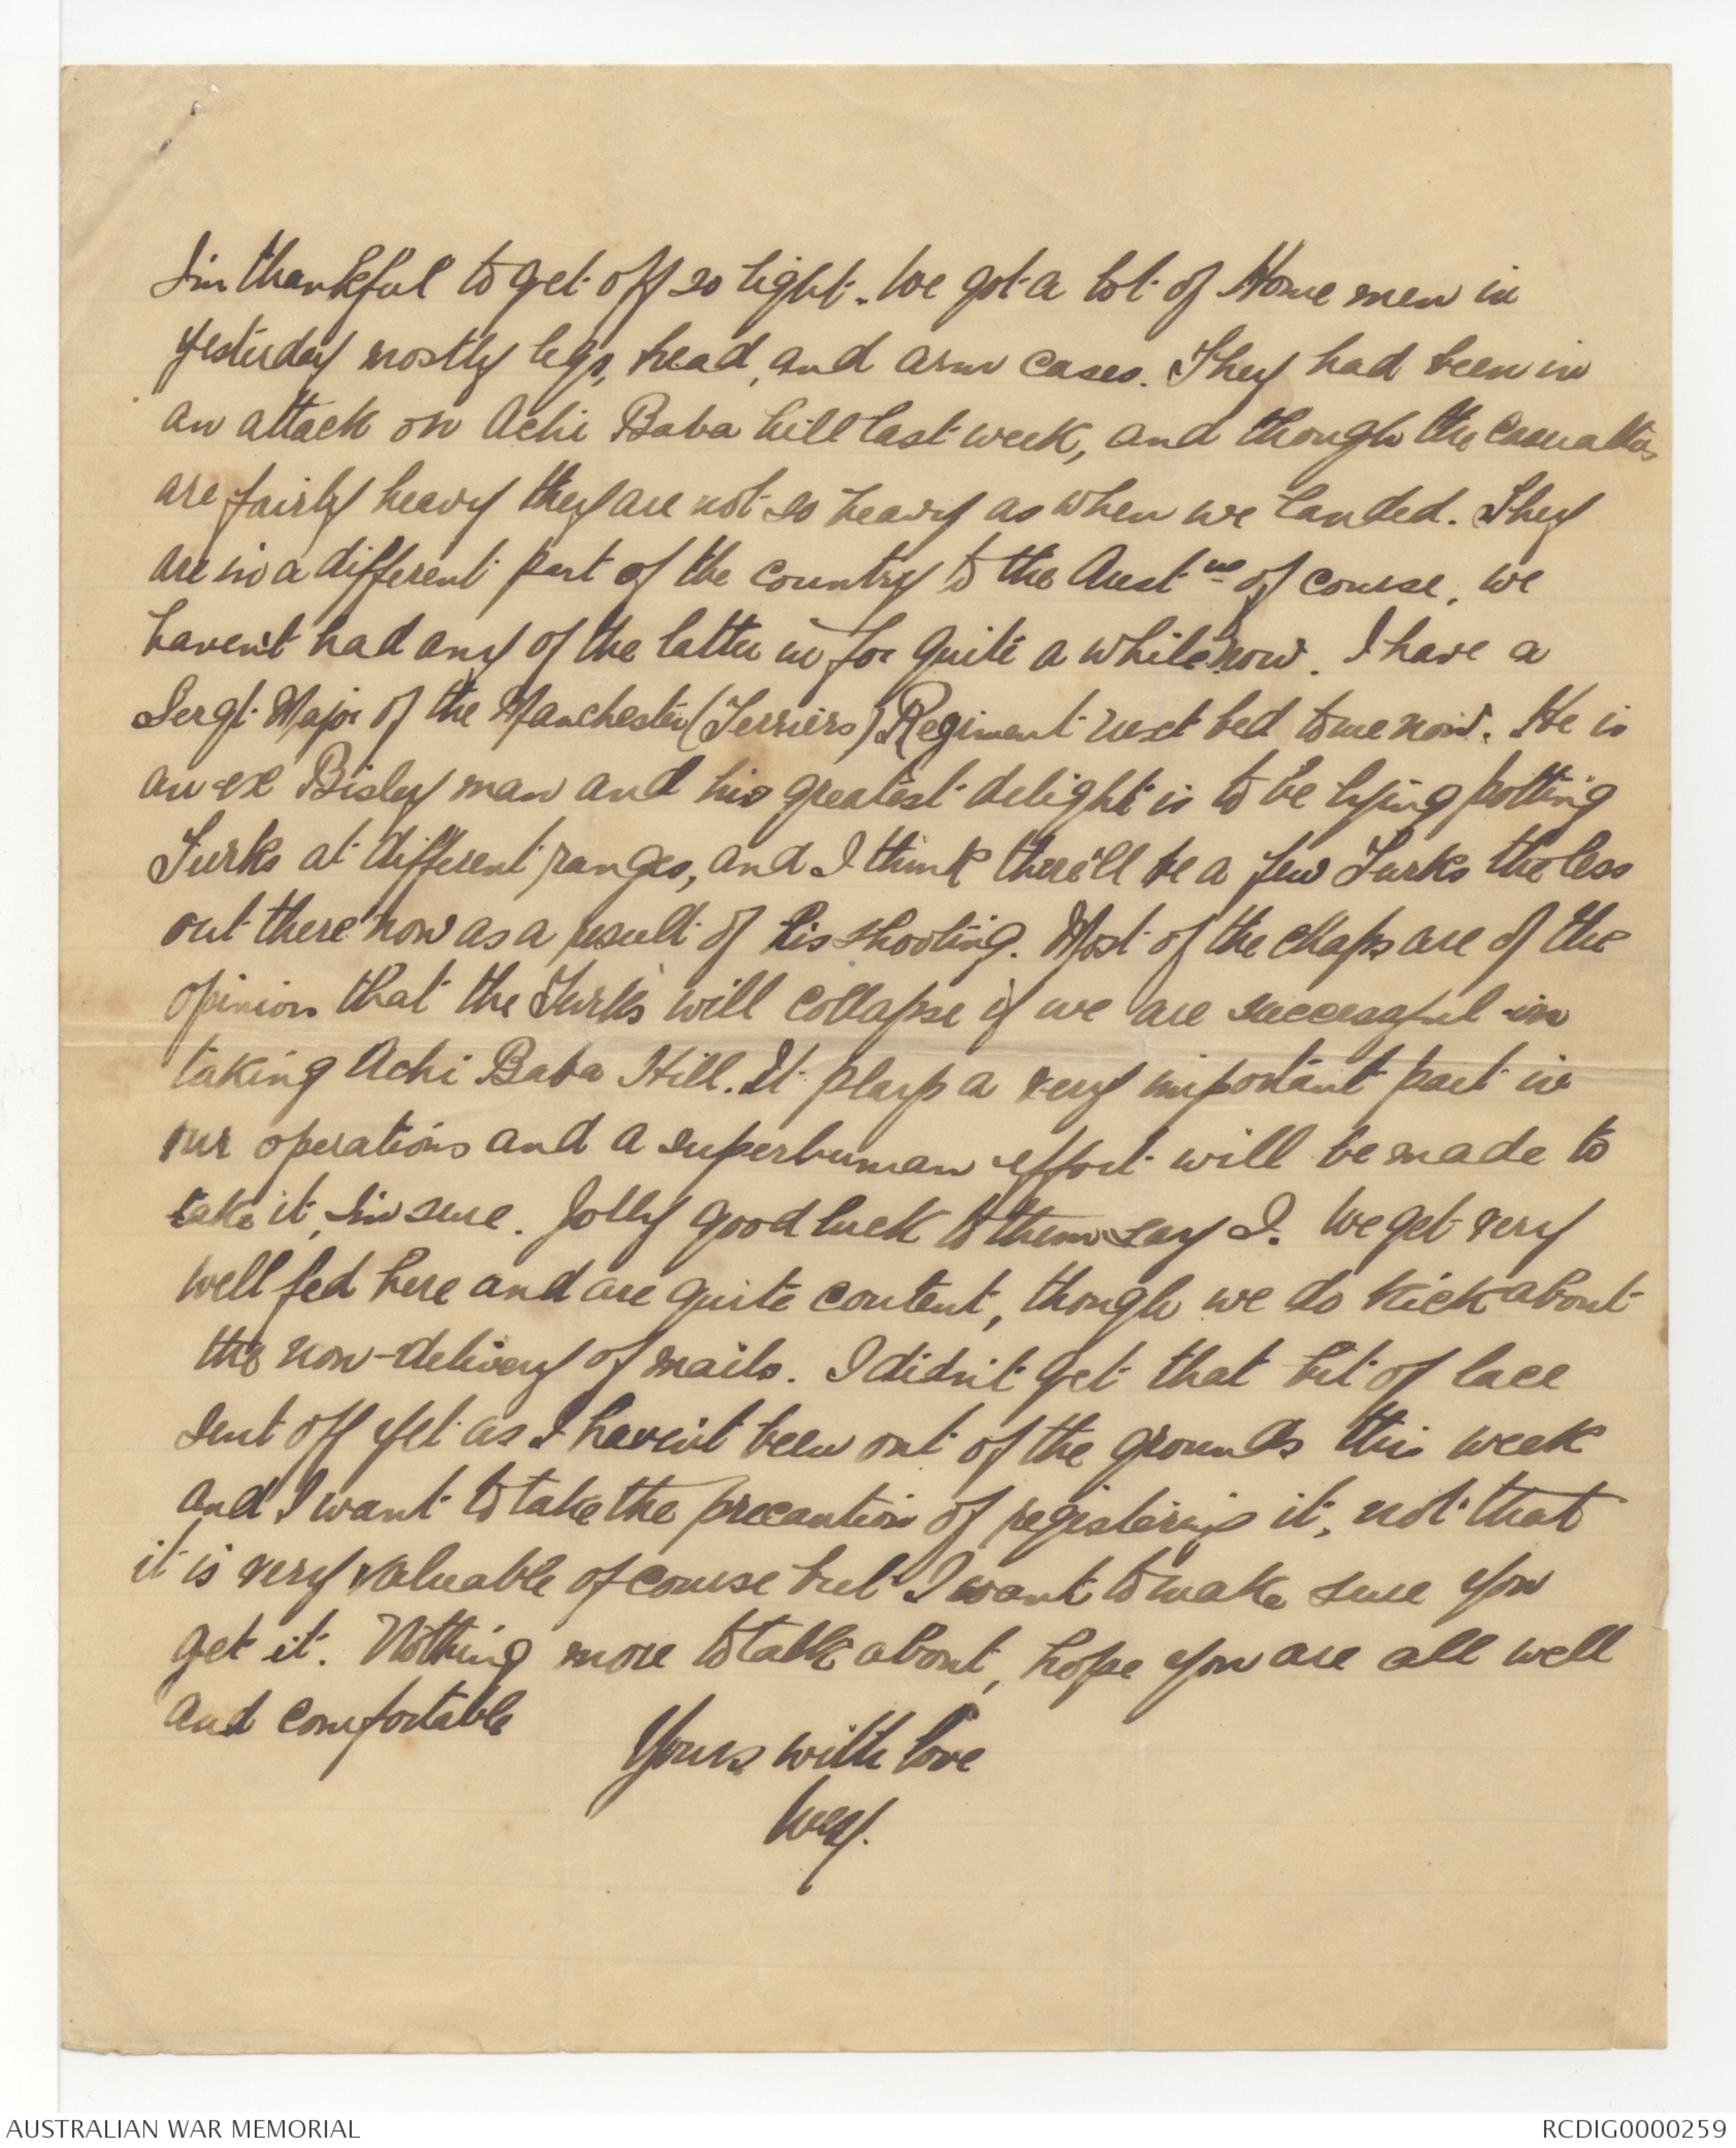 I'm thankful to get off so light. We got a lot of Home men in
yesterday mostly legs, head, and arm cases. They had been in
an attack on Achi Baba hill last week, and though the casualties
are fairly heavy they are not so heavy as when we landed. They
are in a different part of the country to the Aust ns of course, we
haven't had any of the latter in for quite a while now. I have a
Sergt Major of the Manchester (Terriers) Regiment next bed to me now. He is
an ex Bisley man and his greatest delight is to be lying potting
Turks at different ranges, and I think there'll be a few Turks the less
out there now as a result of his shooting. Most of the chaps are of the
opinion that the Turks will collapse if we are successful in
taking Achi Baba Hill. It plays a very important part in
our operations and a superhuman effort will be made to
take it, I'm sure. Jolly good luck to them say I. We get very
well fed here and are quite content, though we do kick about
the non-delivery of mails. I didn't get that bit of lace
sent off yet as I haven't been out of the grounds this week
and I want to take the precaution of registering it, not that
it is very valuable of course but I want to make sure you
get it. Nothing more to talk about, hope you are all well
and comfortable
Yours with love
Wey.
AUSTRALIAN WAR MEMORIAL
RCDIG0000259